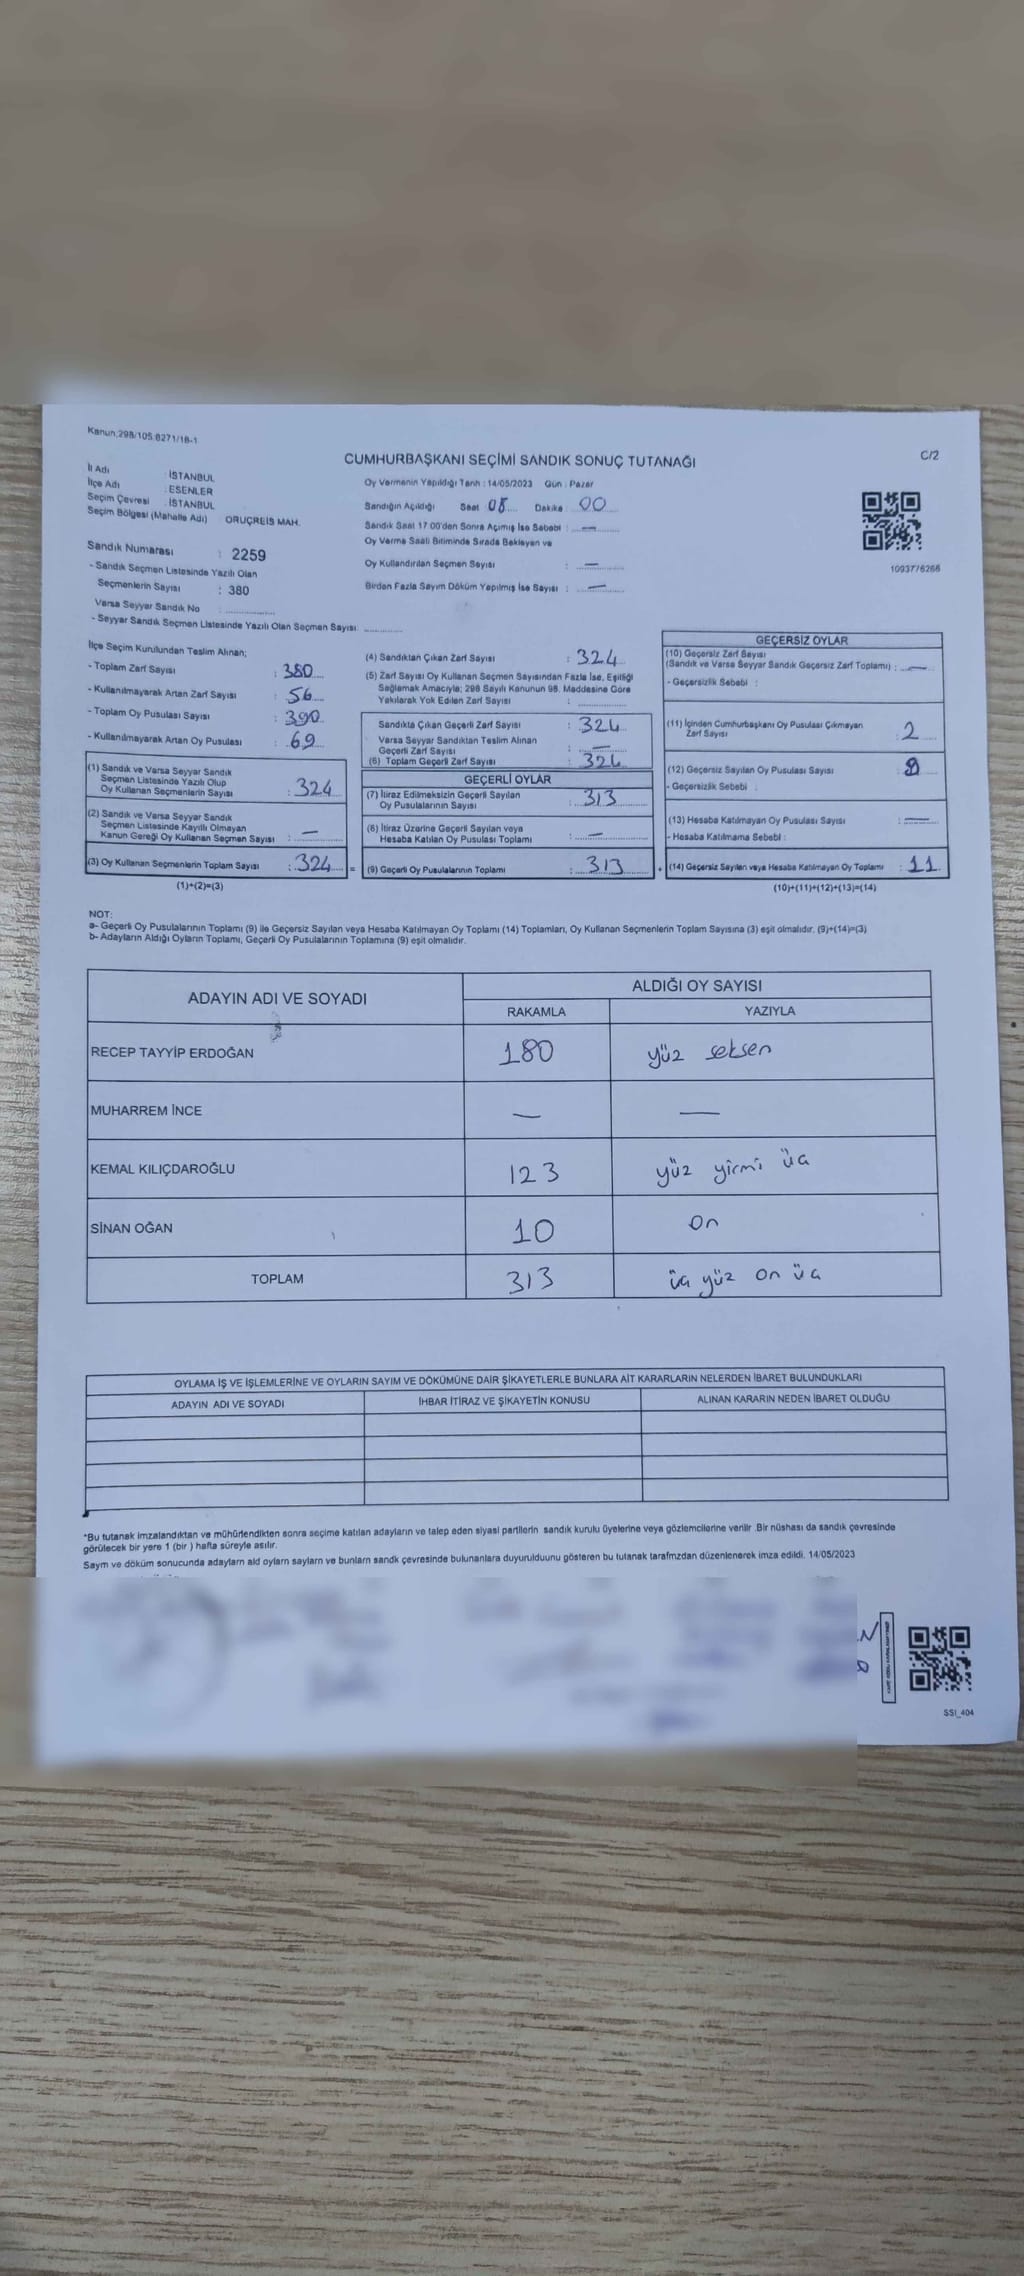 Kanun;298/105.6271/18-1
CUMHURBAŞKANI SEÇİMİ SANDIK SONUÇ TUTANAĞI
C/2
İl Adı : İSTANBUL
İlçe Adı : ESENLER
Seçim Çevresi : İSTANBUL
Seçim Bölgesi (Mahalle Adı) ORUÇREİS MAH.
Sandık Numarası : 2259
- Sandık Seçmen Listesinde Yazılı Olan
Seçmenlerin Sayısı : 380
Varsa Seyyar Sandık No :
- Seyyar Sandık Seçmen Listesinde Yazılı Olan Seçmen Sayısı:
Oy Vermenin Yapıldığı Tarih : 14/05/2023 Gün : Pazar
Sandığın Açıldığı Saat 08 Dakika : 00
Sandık Saat 17:00'den Sonra Açılmış İse Sebebi : —
Oy Verme Saati Bitiminde Sırada Bekleyen ve
Oy Kullandırılan Seçmen Sayısı : —
Birden Fazla Sayım Döküm Yapılmış İse Sayısı : —
1093776266
İlçe Seçim Kurulundan Teslim Alınan;
- Toplam Zarf Sayısı : 380
- Kullanılmayarak Artan Zarf Sayısı : 56
- Toplam Oy Pusulası Sayısı : 390
- Kullanılmayarak Artan Oy Pusulası : 69
(1) Sandık ve Varsa Seyyar Sandık
Seçmen Listesinde Yazılı Olup
Oy Kullanan Seçmenlerin Sayısı : 324
(2) Sandık ve Varsa Seyyar Sandık
Seçmen Listesinde Kayıtlı Olmayan
Kanun Gereği Oy Kullanan Seçmen Sayısı : —
(3) Oy Kullanan Seçmenlerin Toplam Sayısı : 324 =
(1)+(2)=(3)
(4) Sandıktan Çıkan Zarf Sayısı : 324
(5) Zarf Sayısı Oy Kullanan Seçmen Sayısından Fazla İse, Eşitliği
Sağlamak Amacıyla; 298 Sayılı Kanunun 98. Maddesine Göre
Yakılarak Yok Edilen Zarf Sayısı :
Sandıkta Çıkan Geçerli Zarf Sayısı : 324
Varsa Seyyar Sandıktan Teslim Alınan
Geçerli Zarf Sayısı : —
(6) Toplam Geçerli Zarf Sayısı : 324
GEÇERLİ OYLAR
(7) İtiraz Edilmeksizin Geçerli Sayılan
Oy Pusulalarının Sayısı : 313
(8) İtiraz Üzerine Geçerli Sayılan veya
Hesaba Katılan Oy Pusulası Toplamı : —
(9) Geçerli Oy Pusulalarının Toplamı : 313 +
GEÇERSİZ OYLAR
(10) Geçersiz Zarf Sayısı
(Sandık ve Varsa Seyyar Sandık Geçersiz Zarf Toplamı) : —
- Geçersizlik Sebebi :
(11) İçinden Cumhurbaşkanı Oy Pusulası Çıkmayan
Zarf Sayısı : 2
(12) Geçersiz Sayılan Oy Pusulası Sayısı : 9
- Geçersizlik Sebebi :
(13) Hesaba Katılmayan Oy Pusulası Sayısı : —
- Hesaba Katılmama Sebebi :
(14) Geçersiz Sayılan veya Hesaba Katılmayan Oy Toplamı : 11
(10)+(11)+(12)+(13)=(14)
NOT:
a- Geçerli Oy Pusulalarının Toplamı (9) ile Geçersiz Sayılan veya Hesaba Katılmayan Oy Toplamı (14) Toplamları, Oy Kullanan Seçmenlerin Toplam Sayısına (3) eşit olmalıdır. (9)+(14)=(3)
b- Adayların Aldığı Oyların Toplamı, Geçerli Oy Pusulalarının Toplamına (9) eşit olmalıdır.
ADAYIN ADI VE SOYADI
ALDIĞI OY SAYISI
RAKAMLA YAZIYLA
RECEP TAYYİP ERDOĞAN 180 yüz seksen
MUHARREM İNCE — —
KEMAL KILIÇDAROĞLU 123 yüz yirmi üç
SİNAN OĞAN 10 on
TOPLAM 313 üç yüz on üç
OYLAMA İŞ VE İŞLEMLERİNE VE OYLARIN SAYIM VE DÖKÜMÜNE DAİR ŞİKAYETLERLE BUNLARA AİT KARARLARIN NELERDEN İBARET BULUNDUKLARI
ADAYIN ADI VE SOYADI İHBAR İTİRAZ VE ŞİKAYETİN KONUSU ALINAN KARARIN NEDEN İBARET OLDUĞU
*Bu tutanak imzalandıktan ve mühürlendikten sonra seçime katılan adayların ve talep eden siyasi partilerin sandık kurulu üyelerine veya gözlemcilerine verilir .Bir nüshası da sandık çevresinde
görülecek bir yere 1 (bir ) hafta süreyle asılır.
Saym ve döküm sonucunda adaylarn ald oylarn saylarn ve bunlarn sandk çevresinde bulunanlara duyurulduunu gösteren bu tutanak tarafmzdan düzenlenerek imza edildi. 14/05/2023
SSI_404